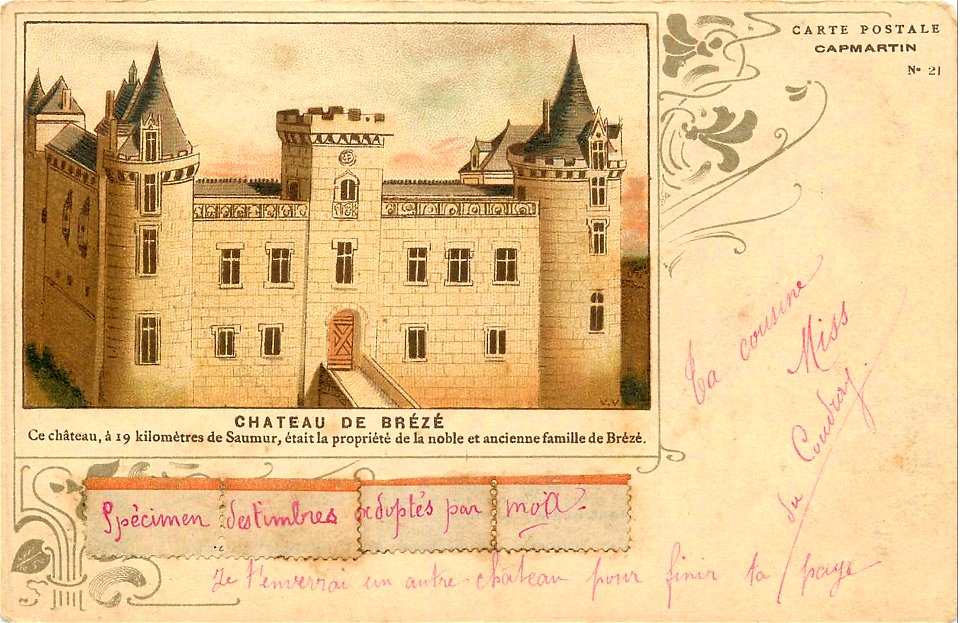 CARTE POSTALE
CAPMARTIN
Nº 21
V.V
CHATEAU DE BRÉZÉ
Ce château, à 19 kilomètres de Saumur, était la propriété de la noble et ancienne famille de Brézé.
Ta cousine
Miss
du Coudray.
Spécimen des timbres adoptés par moi.
Je t'enverrai un autre château pour finir ta page